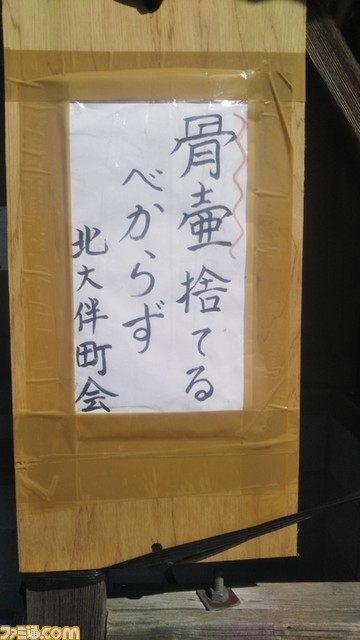 骨壷捨てる
べからず
北大伴町会
ファミ通.com